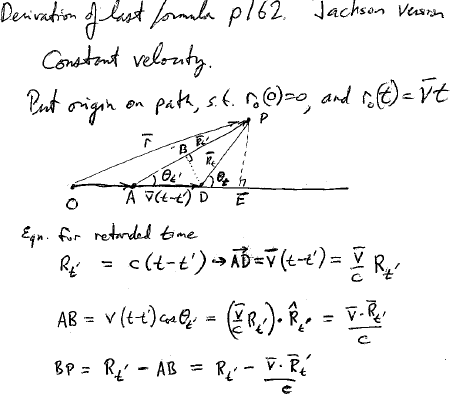 Derivation of last formula p162. Jachson Version
Constant velocity.
Put origin on path, s.t. r₀(0)=0, and r₀(t) = v̄t
P
r̄
B R̄t'
R̄t
θt' θt
O A v̄(t-t') D E
Eqn. for retarded time
Rt' = c(t-t') → AD⃗ = v̄(t-t') = v̄/c Rt'
AB = v(t-t')cosθt' = (v̄/c Rt')·R̂t' = v̄·R̄t'/c
BP = Rt' - AB = Rt' - v̄·R̄t'/c